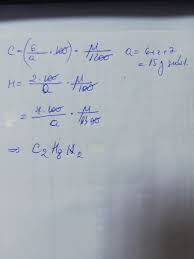 C = (6/a · 100) · M/1200 a = 6+2+7
= 15 g subst.
H = 2·100/a · M/100
= 7·100/a · M/1400
⇒ C2H8N2